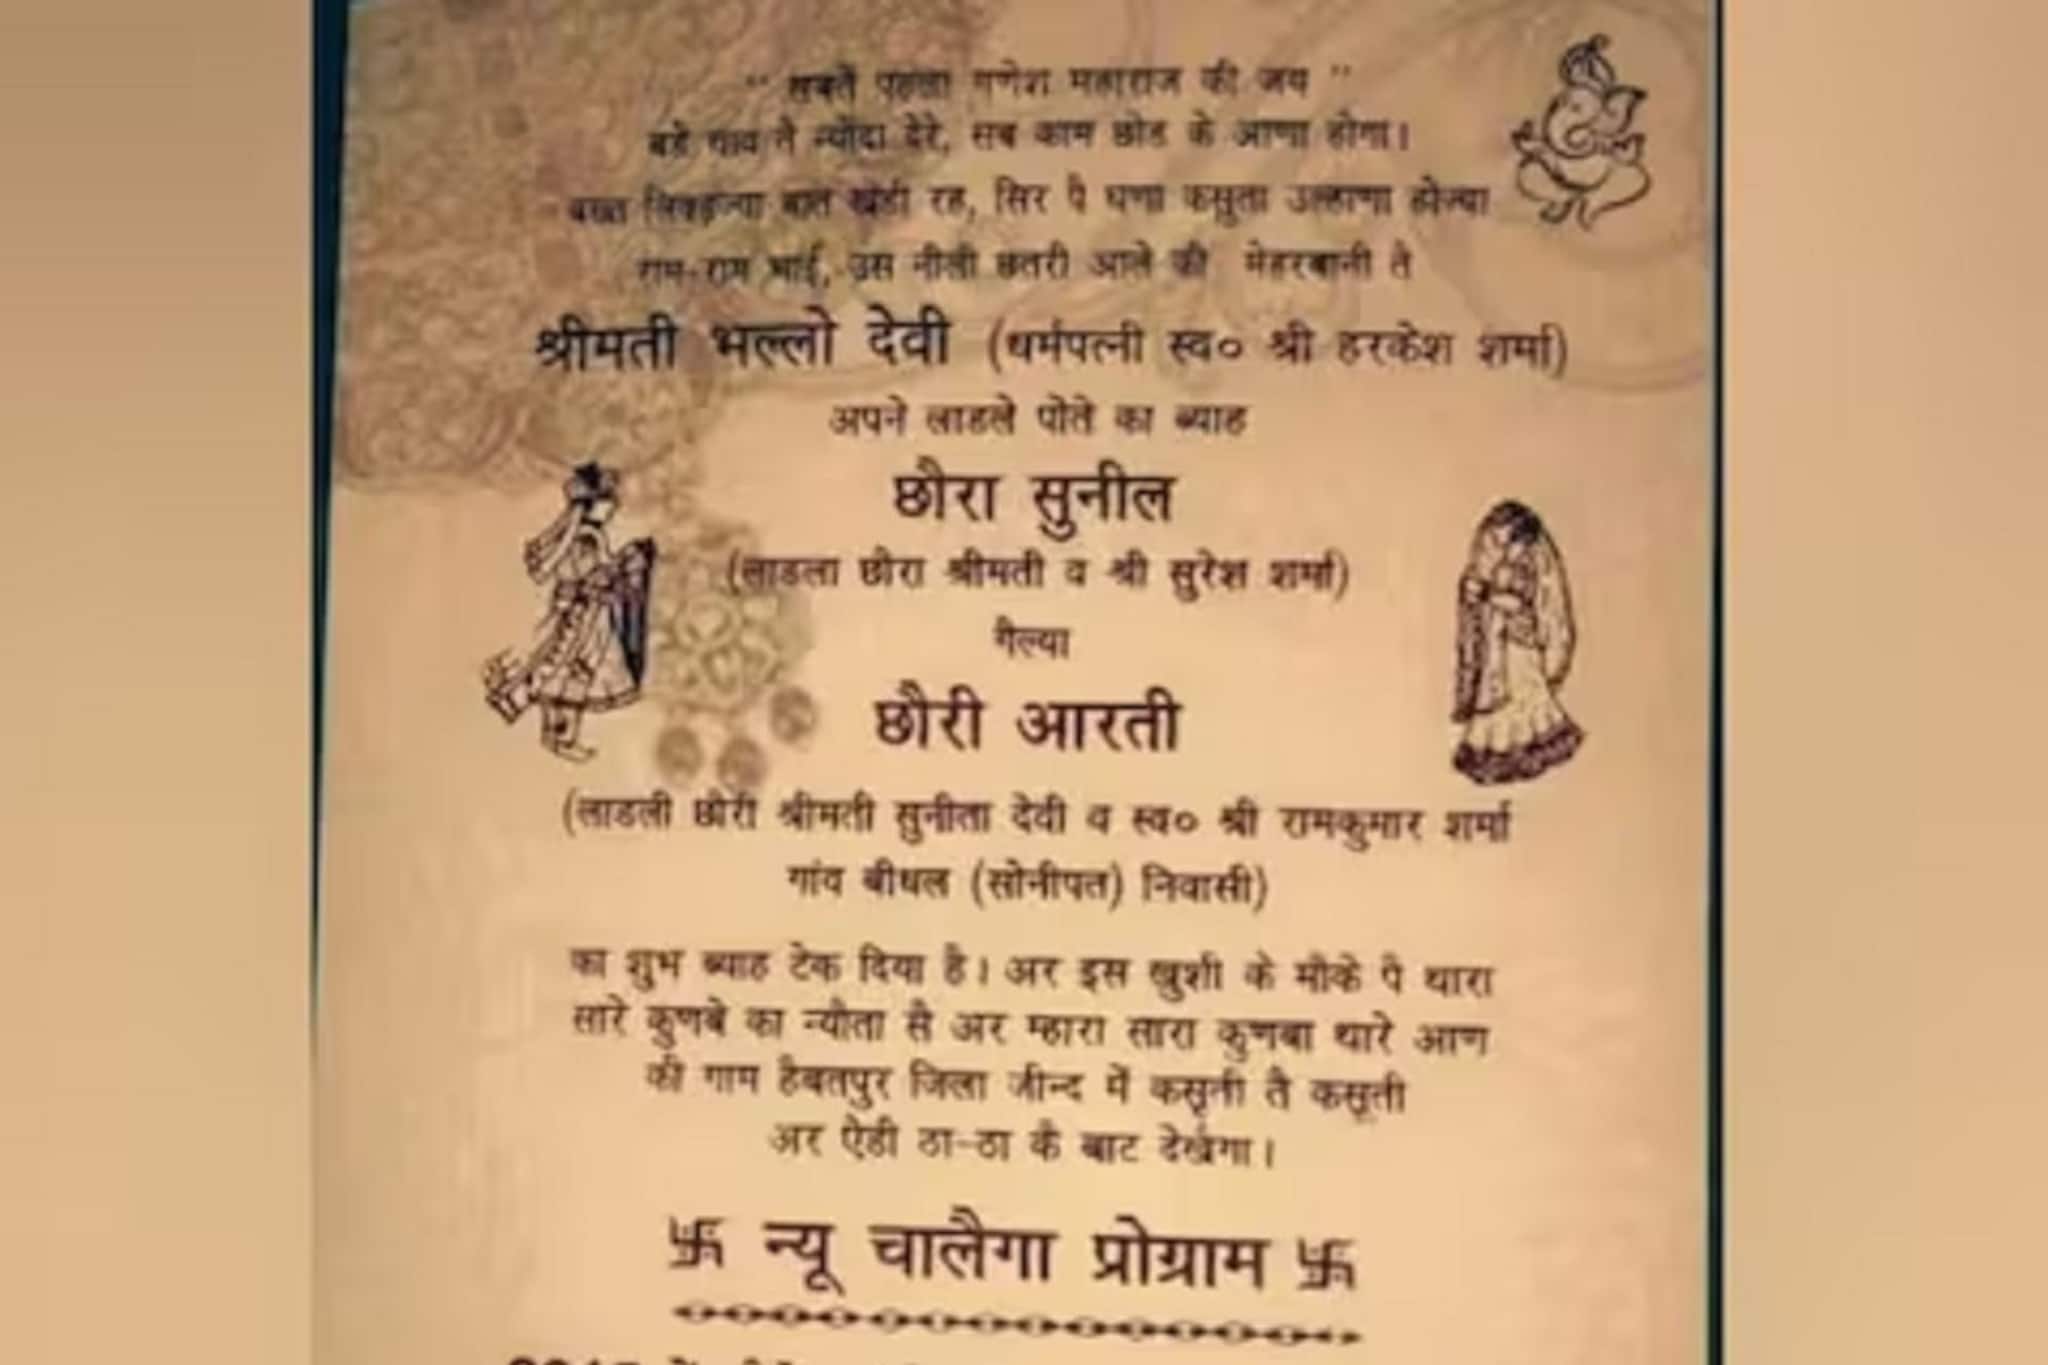 " सबतै पहला गणेश महाराज की जय "
बड़े चाव तै न्योंदा देरे, सब काम छोड के आणा होगा।
बख्त लिकड़ज्या बात खड़ी रह, सिर पै घणा कसुता उल्हाणा होज्या
राम-राम भाई, उस नीली छतरी आले की मेहरबानी तै
श्रीमती भल्लो देवी (धर्मपत्नी स्व० श्री हरकेश शर्मा)
अपने लाडले पोते का ब्याह
छौरा सुनील
(लाडला छौरा श्रीमती व श्री सुरेश शर्मा)
गैल्या
छौरी आरती
(लाडली छौरी श्रीमती सुनीता देवी व स्व० श्री रामकुमार शर्मा
गांव बीधल (सोनीपत) निवासी)
का शुभ ब्याह टेक दिया है। अर इस खुशी के मौके पै थारा
सारे कुणबे का न्यौता सै अर म्हारा सारा कुणबा थारे आण
की गाम हैबतपुर जिला जीन्द में कसूती तै कसूती
अर ऐडी ठा-ठा कै बाट देखेगा।
卐 न्यू चालैगा प्रोग्राम 卐